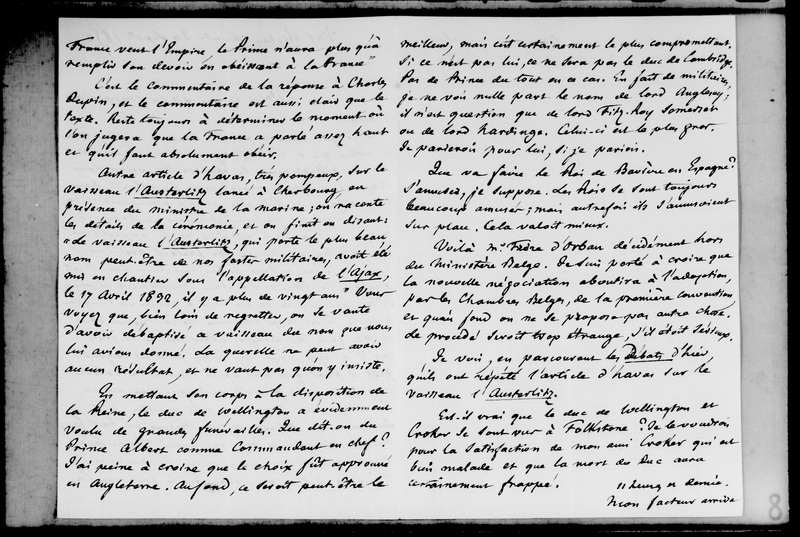 France veut l'Empire le Prince n'aura plus qu'à
remplir son devoir en obéissant à la France"
C'est le commentaire de la réponse à Charles
Dupin, et le commentaire est aussi clair que le
texte. Reste toujours à déterminer le moment où
l'on jugera que la France a parlé assez haut
et qu'il faut absolument obéir.
Autre article d'havas, très pompeux, sur le
vaisseau l'Austerlitz lancé à Cherbourg en
présence du ministre de la marine; on raconte
les détails de la cérémonie, et on finit en disant:
"Le vaisseau l'Austerlitz, qui porte le plus beau
nom peut-être de nos fastes militaires, avoit été
mis en chantier sous l'appellation de l'Ajax,
le 17 Avril 1832, il y a plus de vingt ans" Vous
voyez que, bien loin de regretter, on se vante
d'avoir débaptisé ce vaisseau du nom que nous
lui avions donné. La querelle ne peut avoir
aucun résultat, et ne vaut pas qu'on y insiste.
En mettant son corps à la disposition de
la Reine, le duc de Wellington a évidemment
voulu de grandes funérailles. Que dit-on du
Prince Albert comme Commandant en chef?
J'ai peine à croire que le choix fût approuvé
en Angleterre. Au fond, ce seroit peut-être le
meilleur, mais c'est certainement le plus compromettant.
Si ce n'est pas lui, ce ne sera pas le duc de Cambridge.
Pas de Prince du tout en ce cas. En fait de militaires,
je ne vois nulle part le nom de lord Anglesey;
il n'est question que de lord Fitz-Roy Somerset
ou de lord hardinge. Celui-ci est le plus gros.
Je parierois pour lui, si je pariois.
Que va faire le Roi de Bavière en Espagne?
S'amuser, je suppose. Les Rois se sont toujours
beaucoup amusés; mais autrefois ils s'amusoient
sur place. Cela valoit mieux.
Voilà Mr. Frère d'Orban décidément hors
du Ministère Belge. Je suis porté à croire que
la nouvelle négociation aboutira à l'adoption,
par les Chambres Belges, de la première convention,
et qu'au fond on ne se propose pas autre chose.
Le procédé seroit trop étrange, s'il étoit sérieux.
Je vois, en parcourant les Débats d'hier,
qu'ils ont répété l'article d'havas sur le
vaisseau l'Austerlitz.
Est-il vrai que le duc de Wellington et
Croker se sont vus à Folkstone? Je le voudrois
pour la satisfaction de mon ami Croker qui est
bien malade et que la mort du Duc aura
certainement frappé.
11 heures et demie.
Mon facteur arrive
8